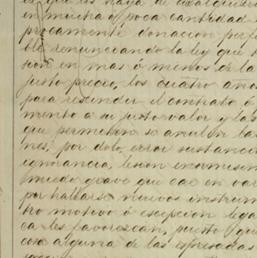 que les haya de cualquier
en mucha ó poca cantidad
procamente donacion perfe
ble renunciando la ley que t
son en mas ó menos de la
justo precio, los cuatro años
para rescindir el contrato ó
mento a su justo valor y las
que permiten se anulen las
nes por dolo, error sustancia
ignorancia, lesion enormisim
puede grave que cae en var
por hallarse nuevos instrum
tro motivo ó escepcion lega
ca les favorezcan, puesto que
cosa alguna de las espresadas